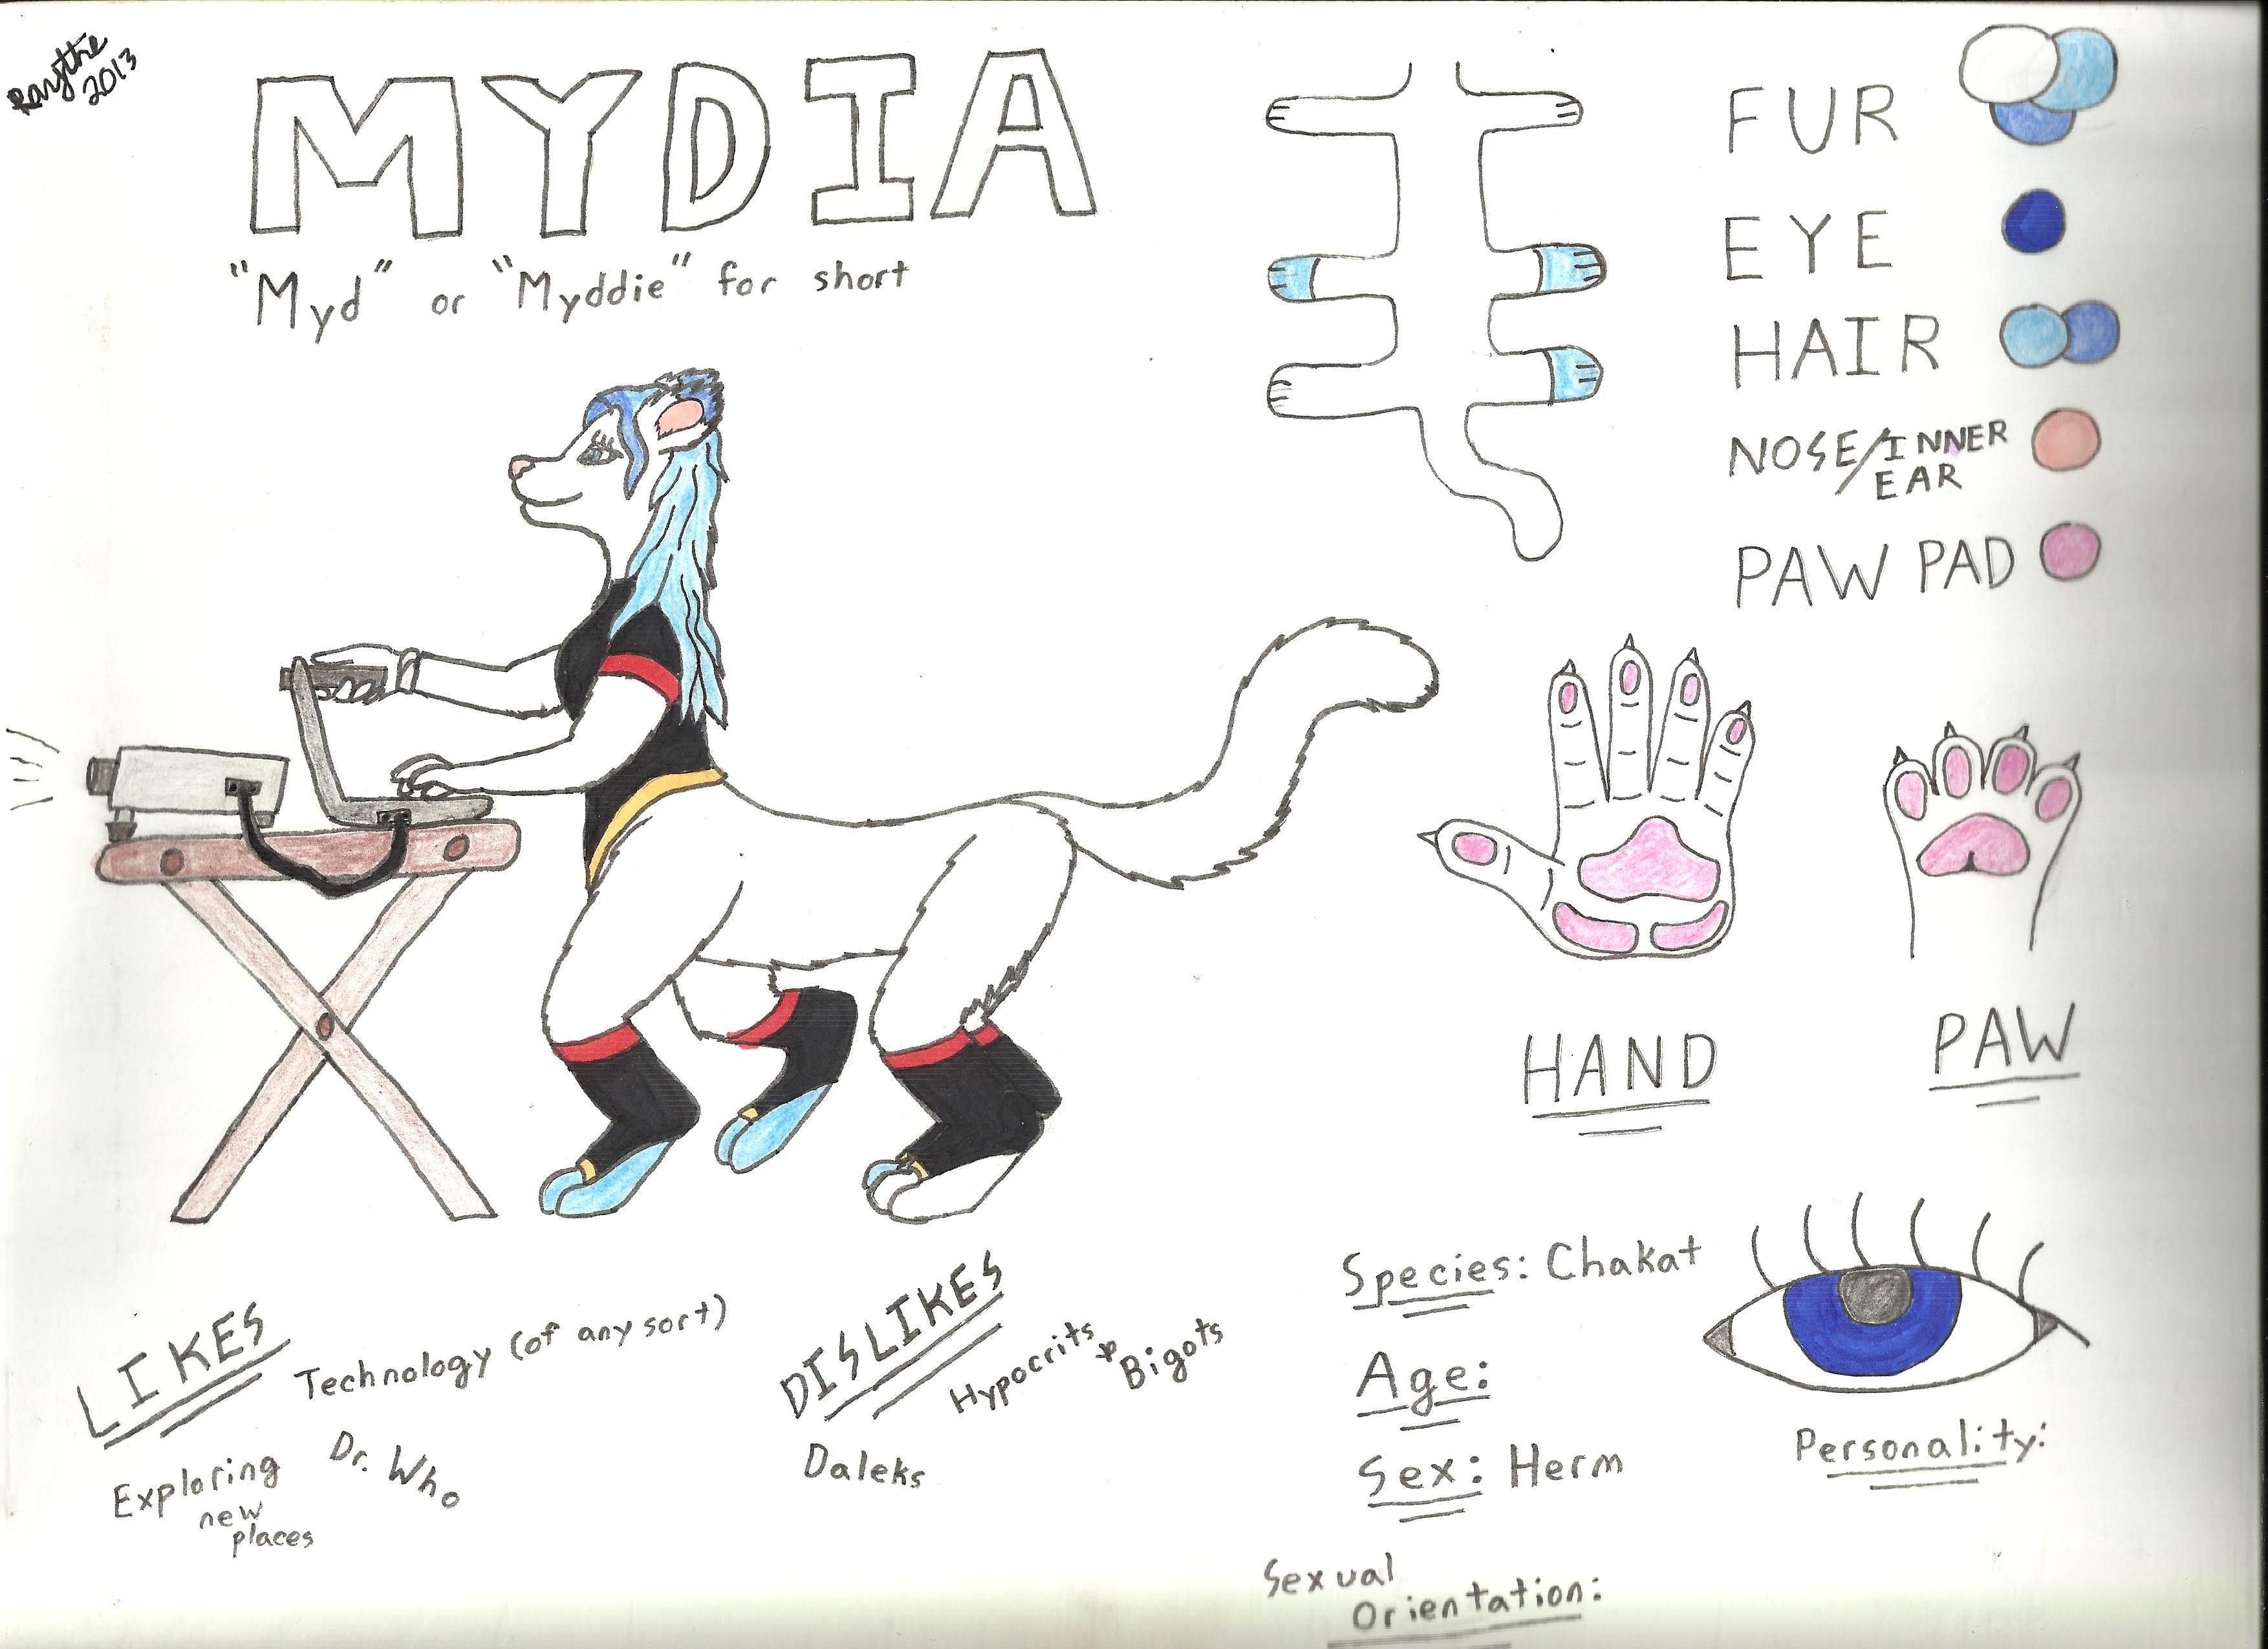 Raythe
2013
MYDIA
"Myd" or "Myddie" for short
FUR
EYE
HAIR
NOSE/INNER
EAR
PAW PAD
HAND
PAW
LIKES
Technology (of any sort)
Exploring
new
places
Dr. Who
DISLIKES
Hypocrits &
Bigots
Daleks
Species: Chakat
Age:
Sex: Herm
Sexual
Orientation:
Personality: